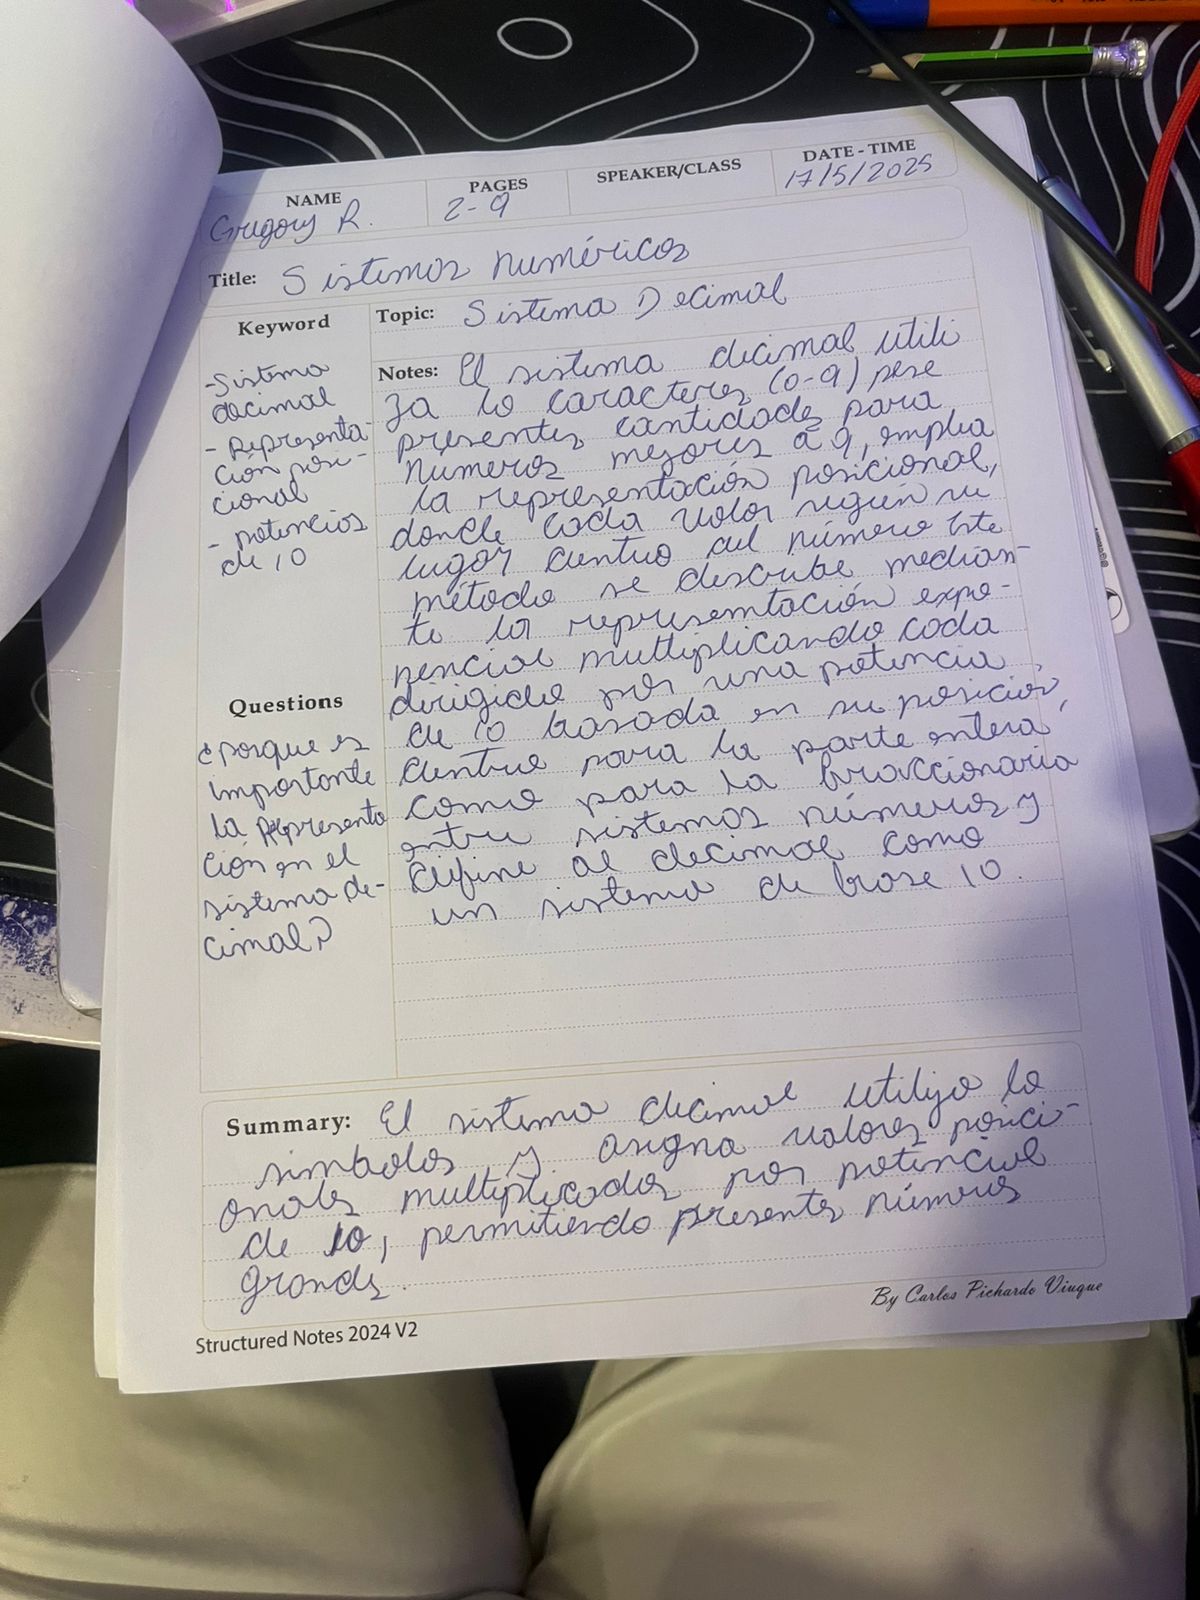 NAME PAGES SPEAKER/CLASS DATE - TIME
Gregory R. 2-9 17/5/2025
Title: Sistemas numéricos
Keyword
-Sistema
decimal
- Representa-
ción posi-
cional
- potencias
de 10
Questions
¿porque es
importante
la Representa
ción en el
sistema de-
cimal?
Topic: Sistema Decimal
Notes: El sistema decimal utili
za lo caracteres (0-9) pese
presentes cantidades para
números mejores a 9, emplea
la representación posicional,
donde cada valor según su
lugar dentro del número Este
método se describe median-
te la representación expo-
nencial multiplicando cada
dirigido por una potencia
de 10 basada en su posición,
dentro para la parte entera,
como para la fraccionaria
entre sistemas números y
define al decimal como
un sistema de base 10.
Summary: El sistema decimal utiliza lo
simbolos y asigna valores posici-
onales multiplicados por potencial
de 10, permitiendo presentes números
grandes.
By Carlos Pichardo Viuque
Structured Notes 2024 V2